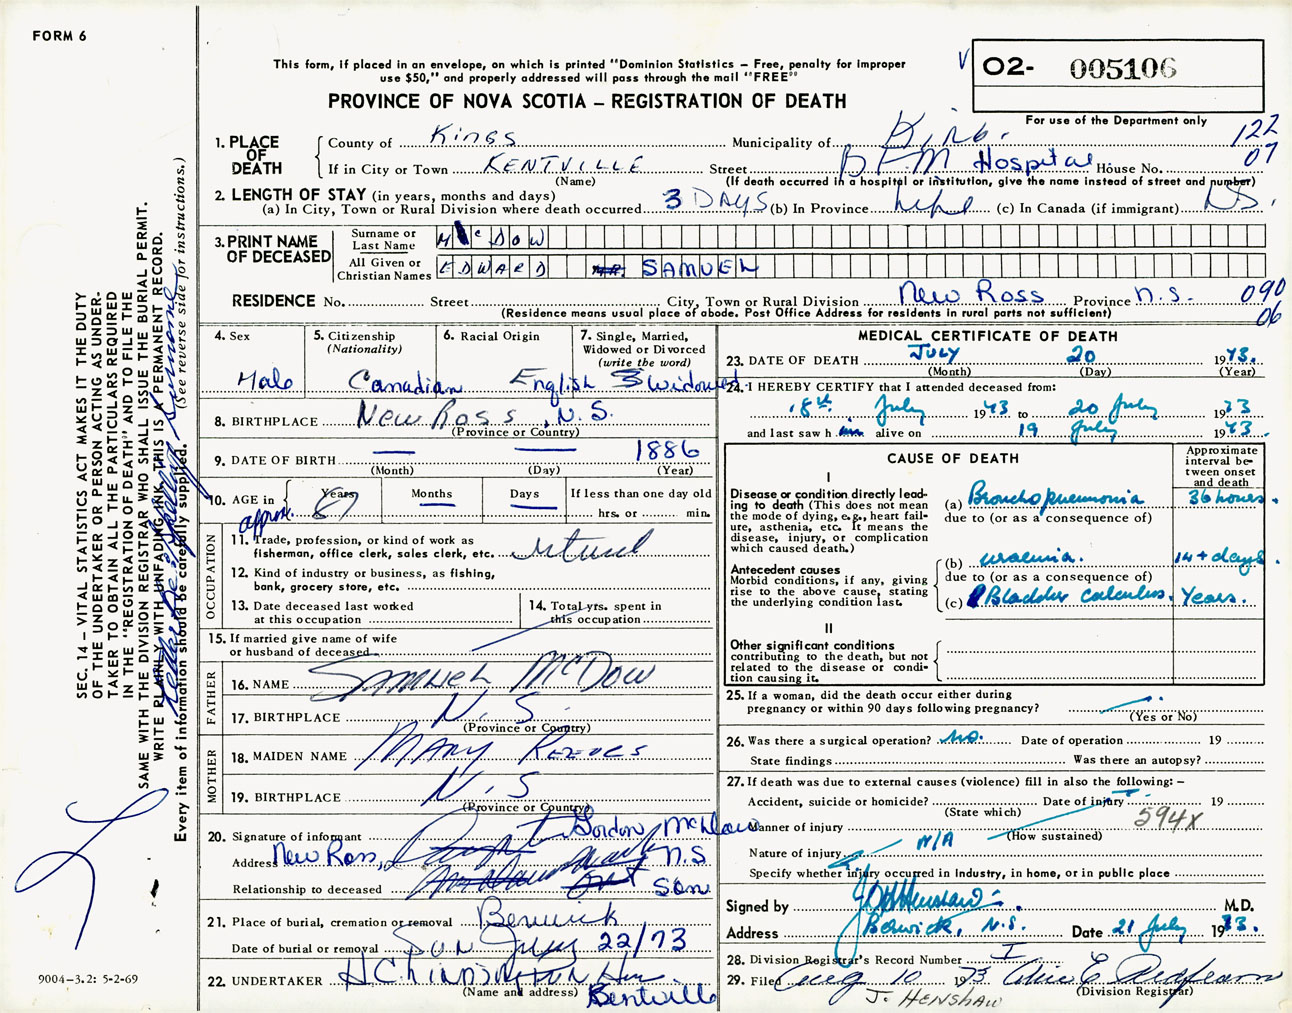 FORM 6
This form, if placed in an envelope, on which is printed "Dominion Statistics – Free, penalty for improper
use $50," and properly addressed will pass through the mail "FREE"
PROVINCE OF NOVA SCOTIA – REGISTRATION OF DEATH
V
02- 005106
For use of the Department only
122
07
1. PLACE OF DEATH
County of Kings Municipality of Kings
If in City or Town KENTVILLE Street B F M Hospital House No.
(Name) (If death occurred in a hospital or institution, give the name instead of street and number)
2. LENGTH OF STAY (in years, months and days)
(a) In City, Town or Rural Division where death occurred 3 DAYS (b) In Province (c) In Canada (if immigrant)
3. PRINT NAME OF DECEASED
Surname or Last Name McDOW
All Given or Christian Names EDWARD SAMUEL
RESIDENCE No. Street City, Town or Rural Division New Ross Province N.S.
090
06
(Residence means usual place of abode. Post Office Address for residents in rural parts not sufficient)
4. Sex
Male
5. Citizenship
(Nationality)
Canadian
6. Racial Origin
English
7. Single, Married,
Widowed or Divorced
(write the word)
3 Widowed
8. BIRTHPLACE New Ross, N.S.
(Province or Country)
9. DATE OF BIRTH — — 1886
(Month) (Day) (Year)
10. AGE in Years Months Days If less than one day old
approx. 87 — — hrs. or min.
OCCUPATION
11. Trade, profession, or kind of work as
fisherman, office clerk, sales clerk, etc. retired
12. Kind of industry or business, as fishing,
bank, grocery store, etc.
13. Date deceased last worked
at this occupation
14. Total yrs. spent in
this occupation
15. If married give name of wife
or husband of deceased
FATHER
16. NAME SAMUEL McDOW
17. BIRTHPLACE N.S.
(Province or Country)
MOTHER
18. MAIDEN NAME MARY REEVES
19. BIRTHPLACE N.S
(Province or Country)
20. Signature of informant Gordon McDow
Address New Ross, N.S
Relationship to deceased Son
21. Place of burial, cremation or removal Berwick
Date of burial or removal SUN July 22/73
22. UNDERTAKER
(Name and address) Kentville
MEDICAL CERTIFICATE OF DEATH
23. DATE OF DEATH JULY 20 1973.
(Month) (Day) (Year)
24. I HEREBY CERTIFY that I attended deceased from:
18th July 1973 to 20 July 1973
and last saw him alive on 19 July 1973.
CAUSE OF DEATH
Approximate
interval be-
tween onset
and death
I
Disease or condition directly lead-
ing to death (This does not mean
the mode of dying, e.g., heart fail-
ure, asthenia, etc. It means the
disease, injury, or complication
which caused death.)
(a) Bronchopneumonia 36 hours.
due to (or as a consequence of)
Antecedent causes
Morbid conditions, if any, giving
rise to the above cause, stating
the underlying condition last.
(b) uraemia. 14+ days.
due to (or as a consequence of)
(c) Bladder calculus. Years.
II
Other significant conditions
contributing to the death, but not
related to the disease or condi-
tion causing it.
25. If a woman, did the death occur either during
pregnancy or within 90 days following pregnancy?
(Yes or No)
26. Was there a surgical operation? No. Date of operation 19
State findings Was there an autopsy?
27. If death was due to external causes (violence) fill in also the following: –
Accident, suicide or homicide? Date of injury 19
(State which)
Manner of injury 594X
(How sustained)
Nature of injury N/A
Specify whether injury occurred in industry, in home, or in public place
Signed by J Henshaw M.D.
Address Berwick, N.S. Date 21 July 1973.
28. Division Registrar's Record Number I
29. Filed Aug 10 1973
(Division Registrar)
J. HENSHAW
SEC. 14 – VITAL STATISTICS ACT MAKES IT THE DUTY
OF THE UNDERTAKER OR PERSON ACTING AS UNDER-
TAKER TO OBTAIN ALL THE PARTICULARS REQUIRED
IN THE "REGISTRATION OF DEATH" AND TO FILE THE
SAME WITH THE DIVISION REGISTRAR WHO SHALL ISSUE THE BURIAL PERMIT.
WRITE PLAINLY WITH UNFADING INK, THIS IS A PERMANENT RECORD.
Every item of information should be carefully supplied. (See reverse side for instructions.)
9004-3.2: 5-2-69